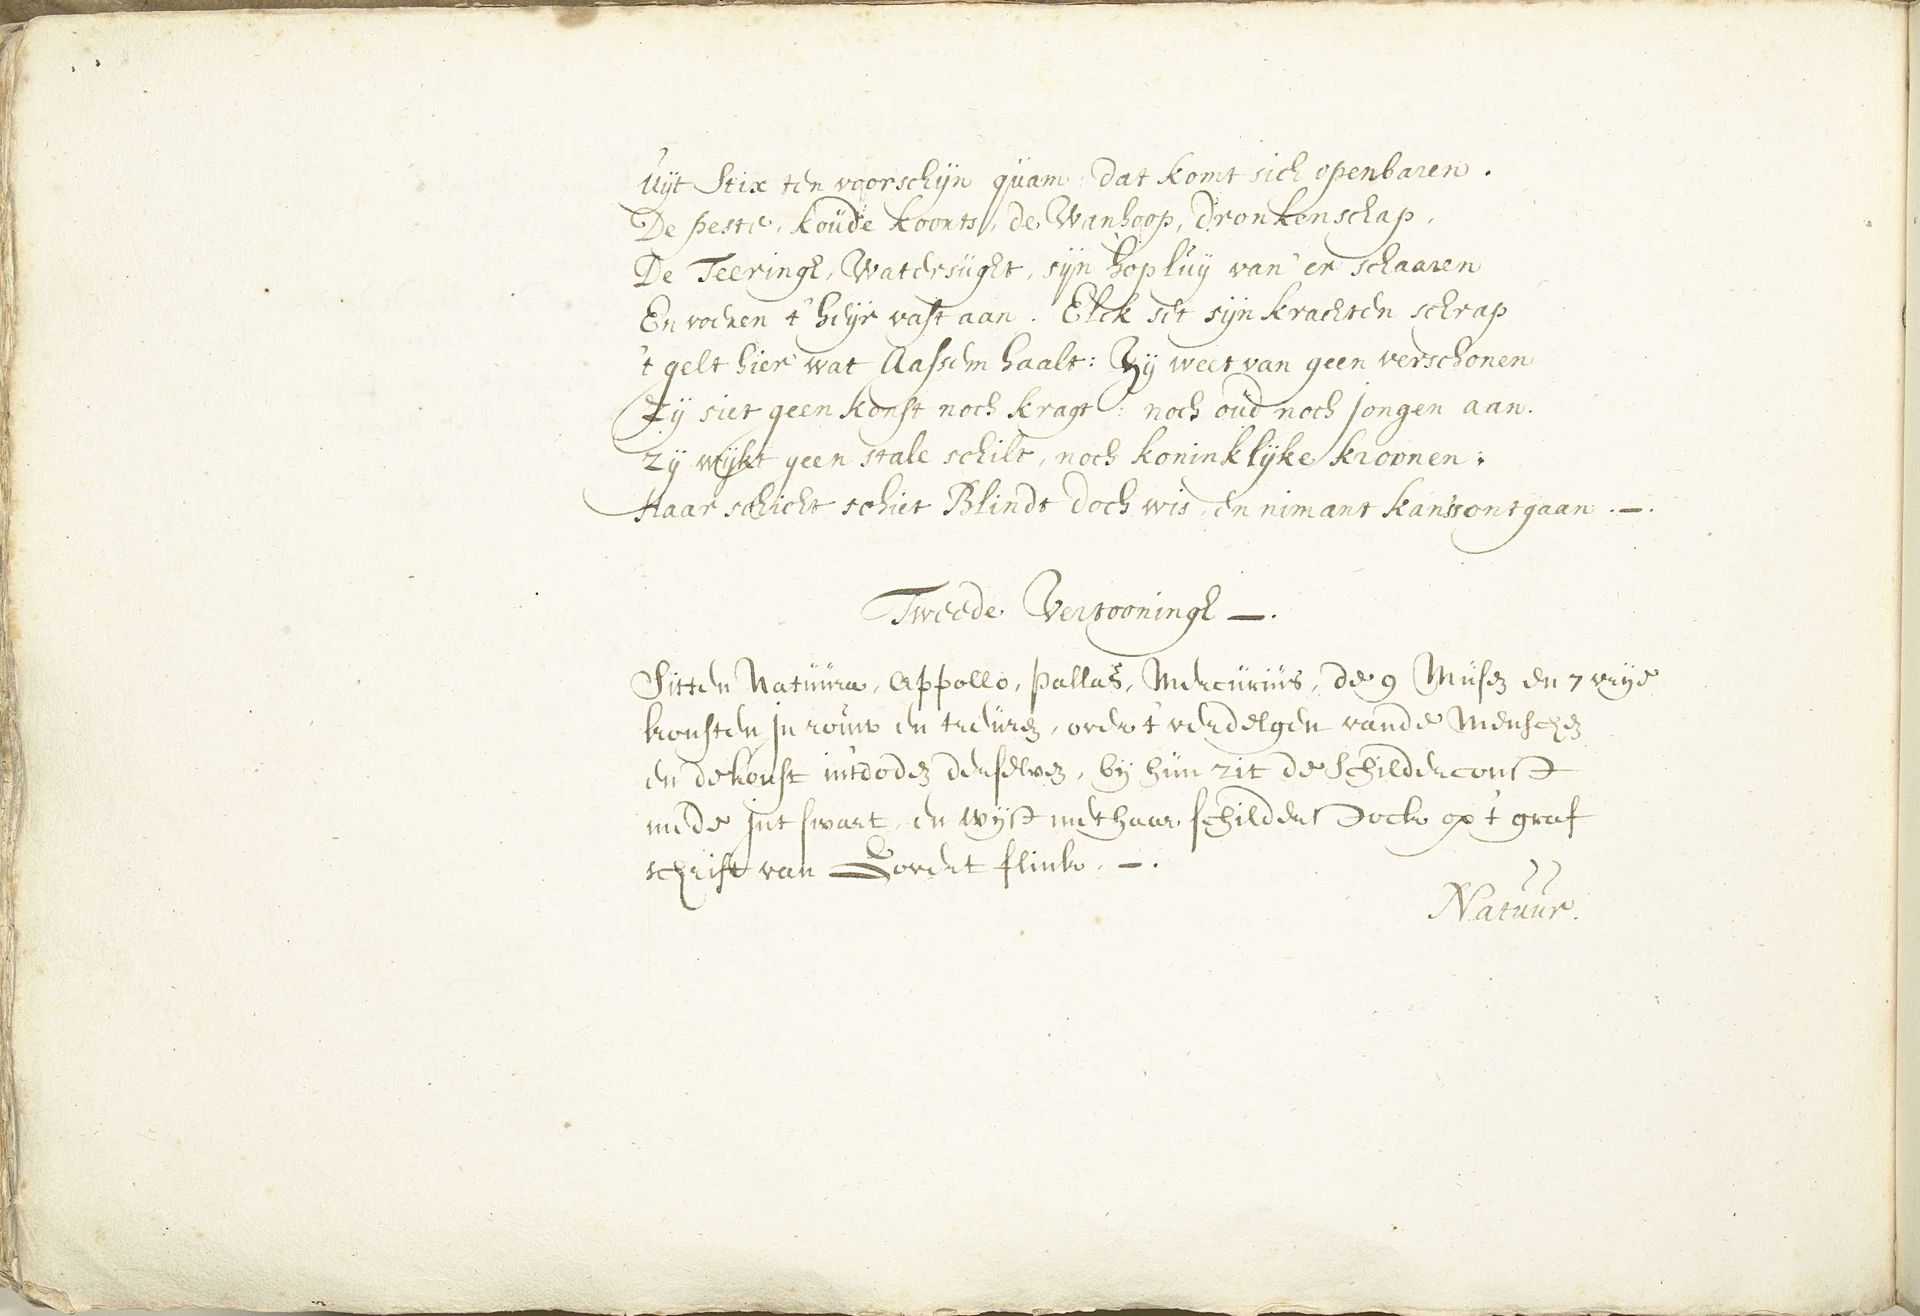 Uÿt Stix ten voorschÿn quam: dat komt sich openbaren.
De peste, koude koorts, de Wanhoop, dronkenschap,
De Teeringh, Watersught, sÿn hopluÿ van er schaaren
En voeren 't heÿr vast aan. Elck set sÿn krachten schrap
't gelt hier wat Aassem haalt: Zÿ weet van geen verschonen
Zÿ siet geen konst noch kragt: noch oud noch jongen aan.
Zÿ wÿkt geen stale schilt, noch koninklÿke kroonen:
Haar schicht schiet Blindt doch wis, en nimant kans ontgaan.—.
Tweede Vertooningh—.
Sitten Natuura, Appollo, Pallas, Mercurius, de 9 Musen en 7 vrÿe
konsten in rouw en treuren, over 't verdelgen vande Menschen
en de konst int doden derselven, bÿ hun zit de Schilderconst
mede int swart, en wÿst met haar schilder stock op 't graf
schrift van Govert flink.—.
Natuur.